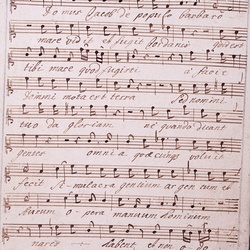 Domus Jacob de populo barbaro
mare vidit et fugit Jordanis
tibi mare quod fugisti à facie
Domini mota est terra Sed nomini
tuo da gloriam ne quando dicant
gentes omnia quæcunque voluit
fecit Simulacra gentium argentum et
Aurum opera manuum hominum
nares habent et non odo